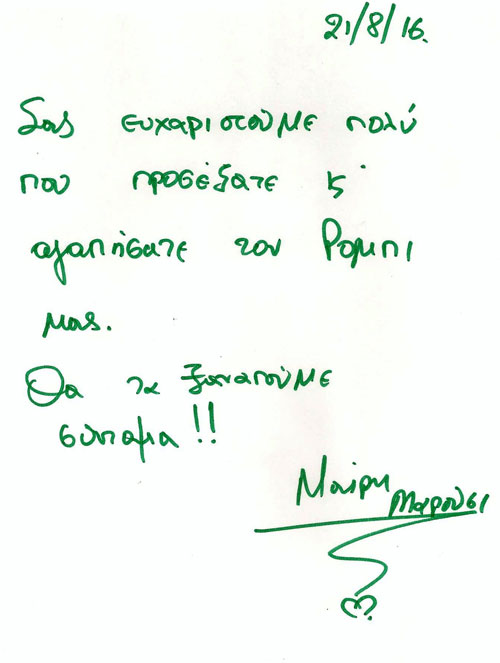 21/8/16.
Σας ευχαριστούμε πολύ
που προσέξατε κ'
αγαπήσατε τον Ρομπι
μας.
Θα τα ξαναπούμε
σύντομα!!
Μαίρη
Μαρούσι